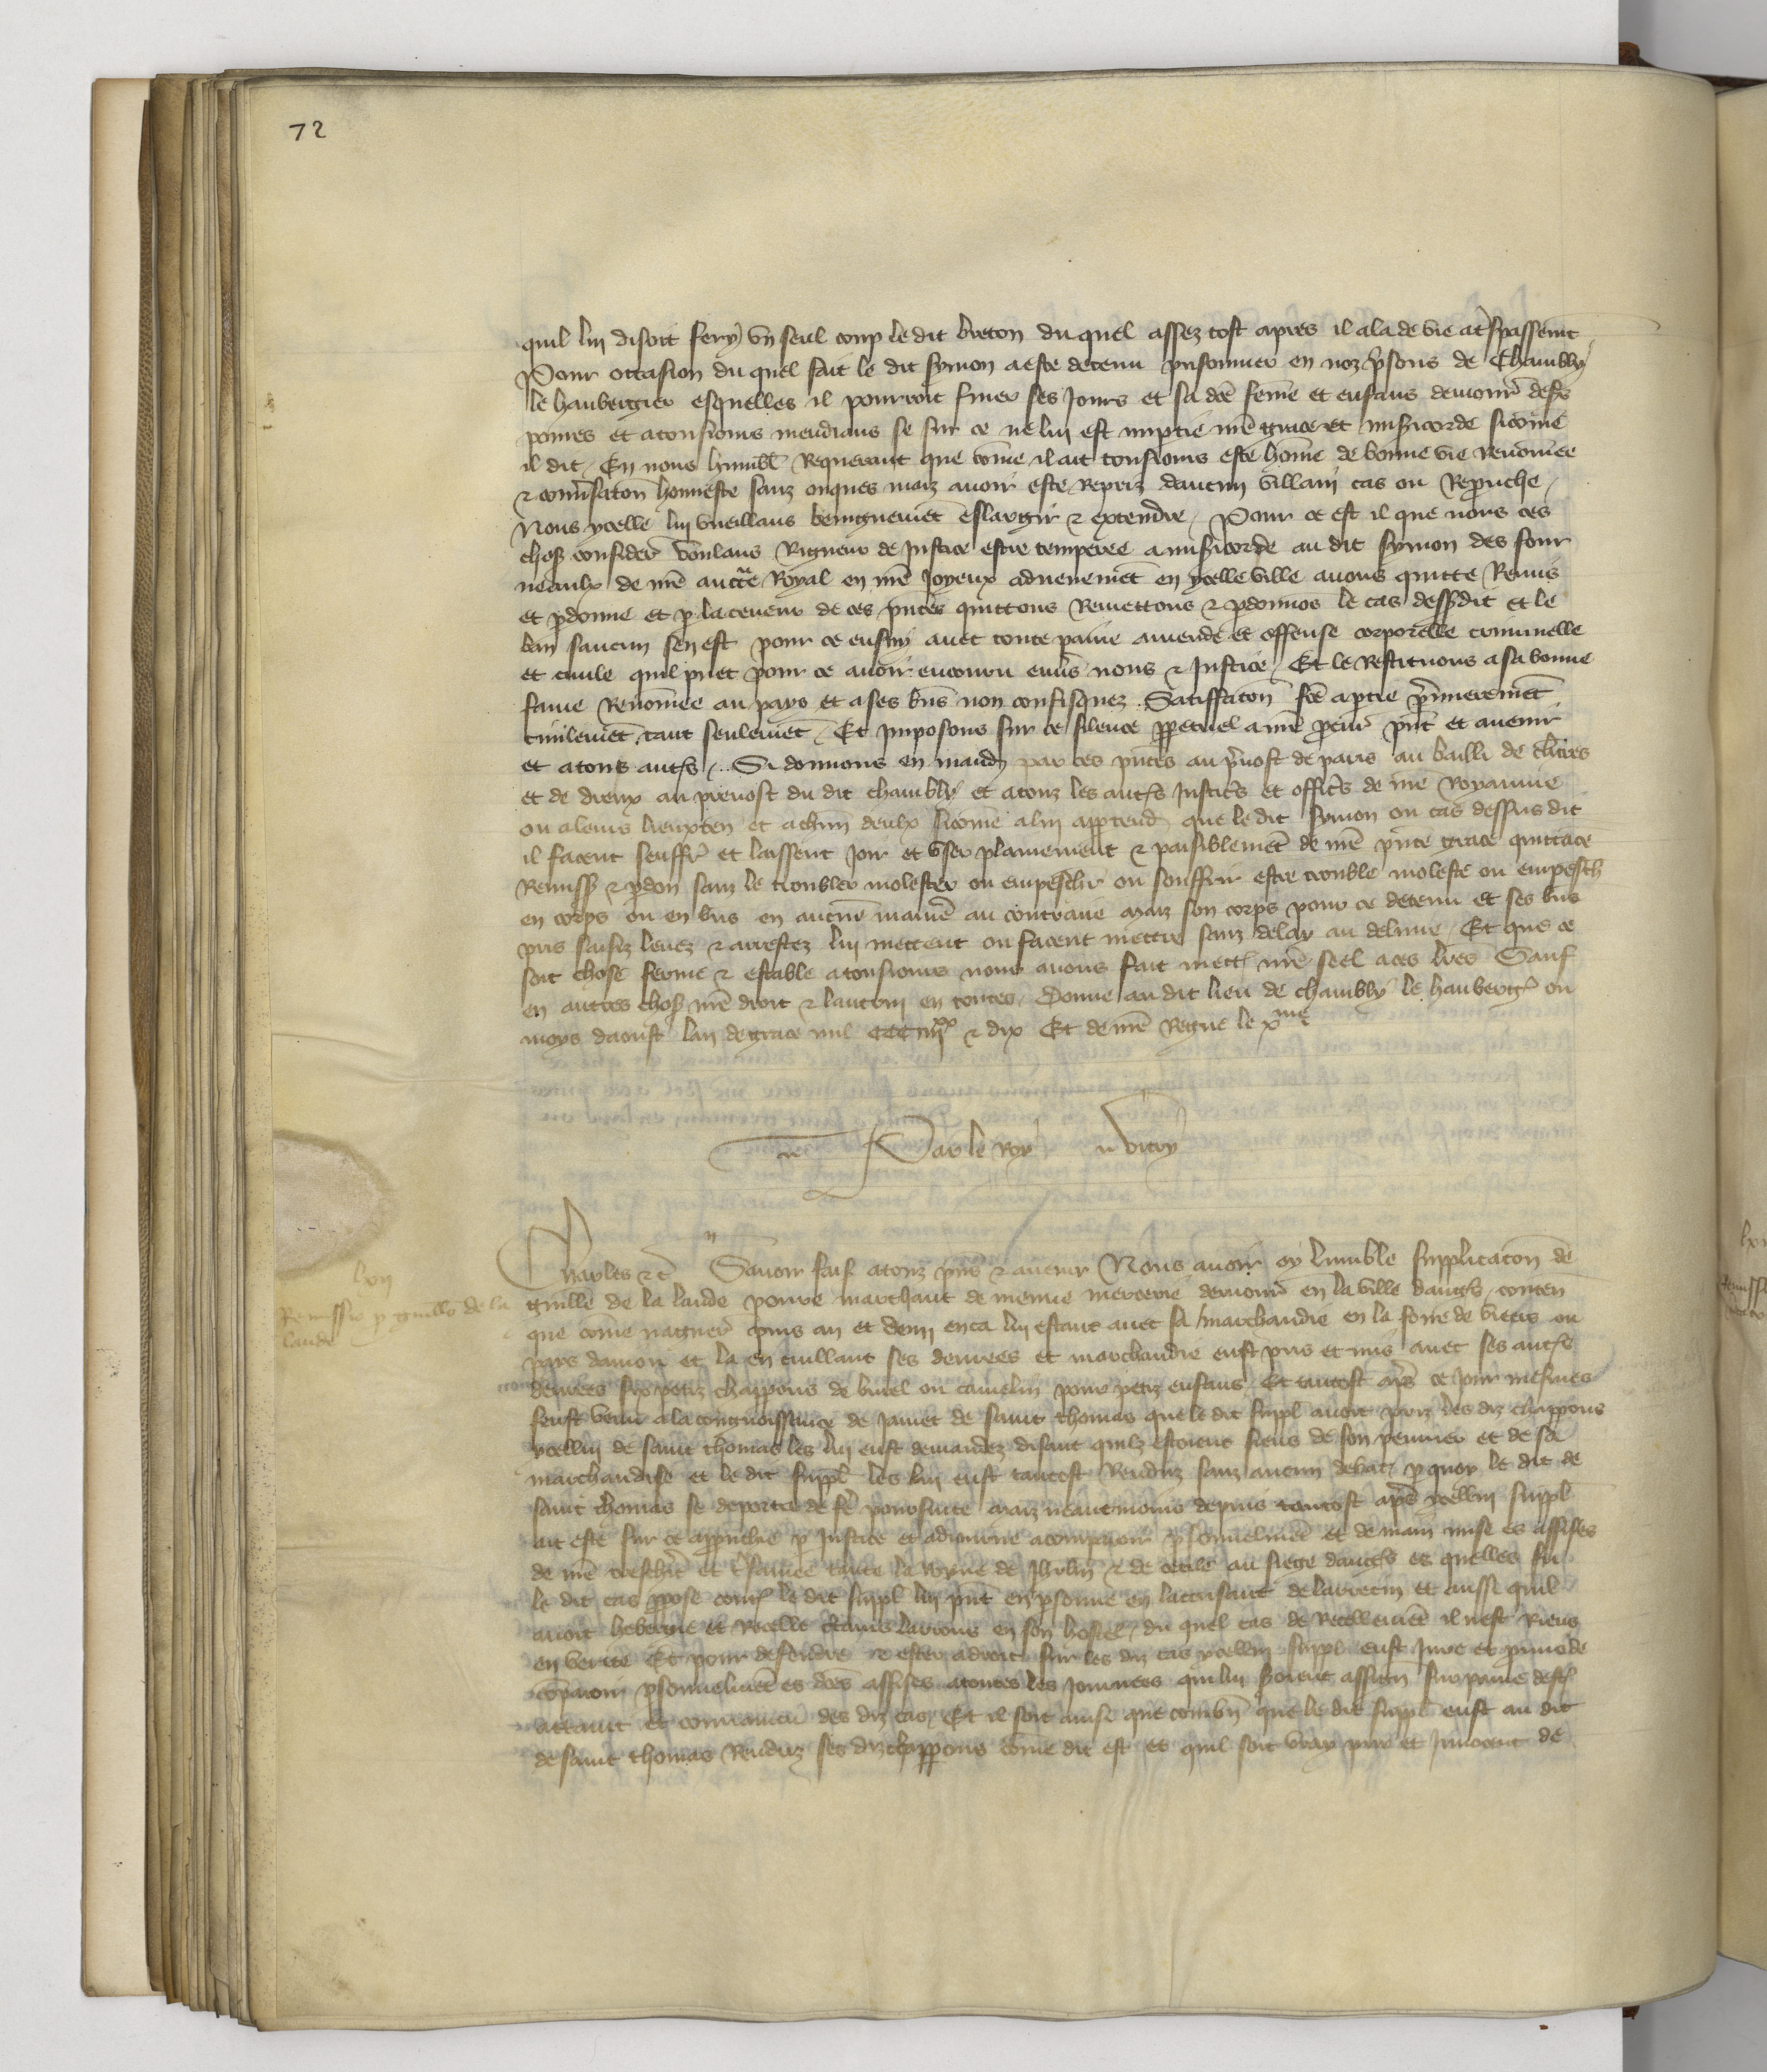 72
quil lui disoit fery un seul coup le dit breton du quel assez tost apres il ala de vie a trespassement
Pour occasion du quel fait le dit symon a este detenu prisonnier en noz prisons de Chambly
le haubergier esquelles il pourroit finer ses jours et sa dce feme et enfans demour
poures et a tousiours mendians se sur ce ne lui est impartie nre grace et misericorde sicome
il dit / En nous humbl Requerant que come il ait tousiours este home de bonne vie Renomee
& conversacon honneste sanz onques maiz avoir este Repris daucun villain cas ou Reprouche /
Nous ycelle lui vueillans benignement eslargir & extendre / Pour ce est il que nous ces
choses consider voulans Rigueur de justice estre temperee a misericorde au dit symon des four
neaulx de nre auctte Royal en nre joyeux advenement en ycelle ville avons quitte Remis
et pdonne et p la teneur de ces pntes quittons Remettons & pdonnons le cas dessusdit et le
ban saucun sen est pour ce ensuy avec toute paine amende et offense corporelle criminelle
et civile quil puet pour ce avoir encouru envers nous & justice / Et le Restituons a sa bonne
fame Renomee au pays et a ses biens non confisquez . Satiffacon fce a ptie premierement
civilement tant seulement / Et jmposons sur ce silence ppetuel a nre procur pnt et avenir
et a tous autres / Si donnons en mand par ces pntes au prevost de paris au bailli de chartres
et de dreux au prevost du dit chambly et a touz les autres justiciers et officiers de nre Royaume
ou a leurs lieuxten et a chun deulx sicome a lui appartiend que le dit symon ou cas dessus dit
il facent seuffr et laissent joir et user plainement & paisiblement de nre pnte grace quittace
Remiss & pdon sanz le troubler molester ou empeschr ou souffrir estre trouble moleste ou empesch
en corps ou en biens en aucune maniere au contraire maiz son corps pour ce detenu et ses biens
pris saisiz levez & arrestez lui mettent ou facent mettre sanz delay au delivre / Et que ce
soit chose ferme & estable a tousiours nous avons fait mettre nre seel a ces lres Sauf
en autres choses nre droit & lautrui en toutes / Donne au dit lieu de chambly le hauberg ou
moys daoust lan de grace mil CCC iiiixx & dix Et de nre Regne le xme
Par le Roy   vitry
lxii
Remissio p guillo de la
lande
Charles &c Savoir fais a touz pns & avenir Nous avoir oy lumble supplicacon de
guille de la lande povre marchant de menue mercerie demour en la ville dangers / conten
que come naguer puis an et demi en ca lui estant avec sa marchandie en la foire de ou
pays danjou et la en cuillant ses denrees et marchandie eust pris et mis avec ses autres
denrees six petiz chappons de ou camelin pour petiz enfans / Et tantost apres ce jour mesmes
feust venu a la congnoissance de jamet de saint thomas que le dit suppl avoit pris les diz chappons
ycellui de saint thomas les lui eust demandez disant quilz estoient siens de son pennier et de sa
marchandise et le dit suppl les lui eust tantost Renduz sanz aucun debat / p quoy le dit de
saint thomas se deporta de fe poursuite maiz neantmoins depuis tantost apres ycellui suppl
ait este sur ce approuchie p justice et adjourne a comparoir psonnelment et de main mise es assises
de nre treschie et tresamee tante la Royne de Jhrlm & de cecile au siege dangers es quelles fu
le dit cas propose contre le dit suppl lui pnt en psonne en laccusant de larrecin et aussi quil
avoit hebergie et Recelle ctains larrons en son hostel / du quel cas de Recellement il nest Riens
en verite Et pour defendre & ester a droit sur les diz cas ycellui suppl eust jure et promis de
comparoir psonnelment es dces assises a toutes les journees qui lui seroient assign sur paine destre
attaint et convaincu des diz cas / Et il soit ainsi que combn que le dit suppl eust au dit
de saint thomas Renduz ses diz chappons come dit est et quil soit vray pur et jnnocent de